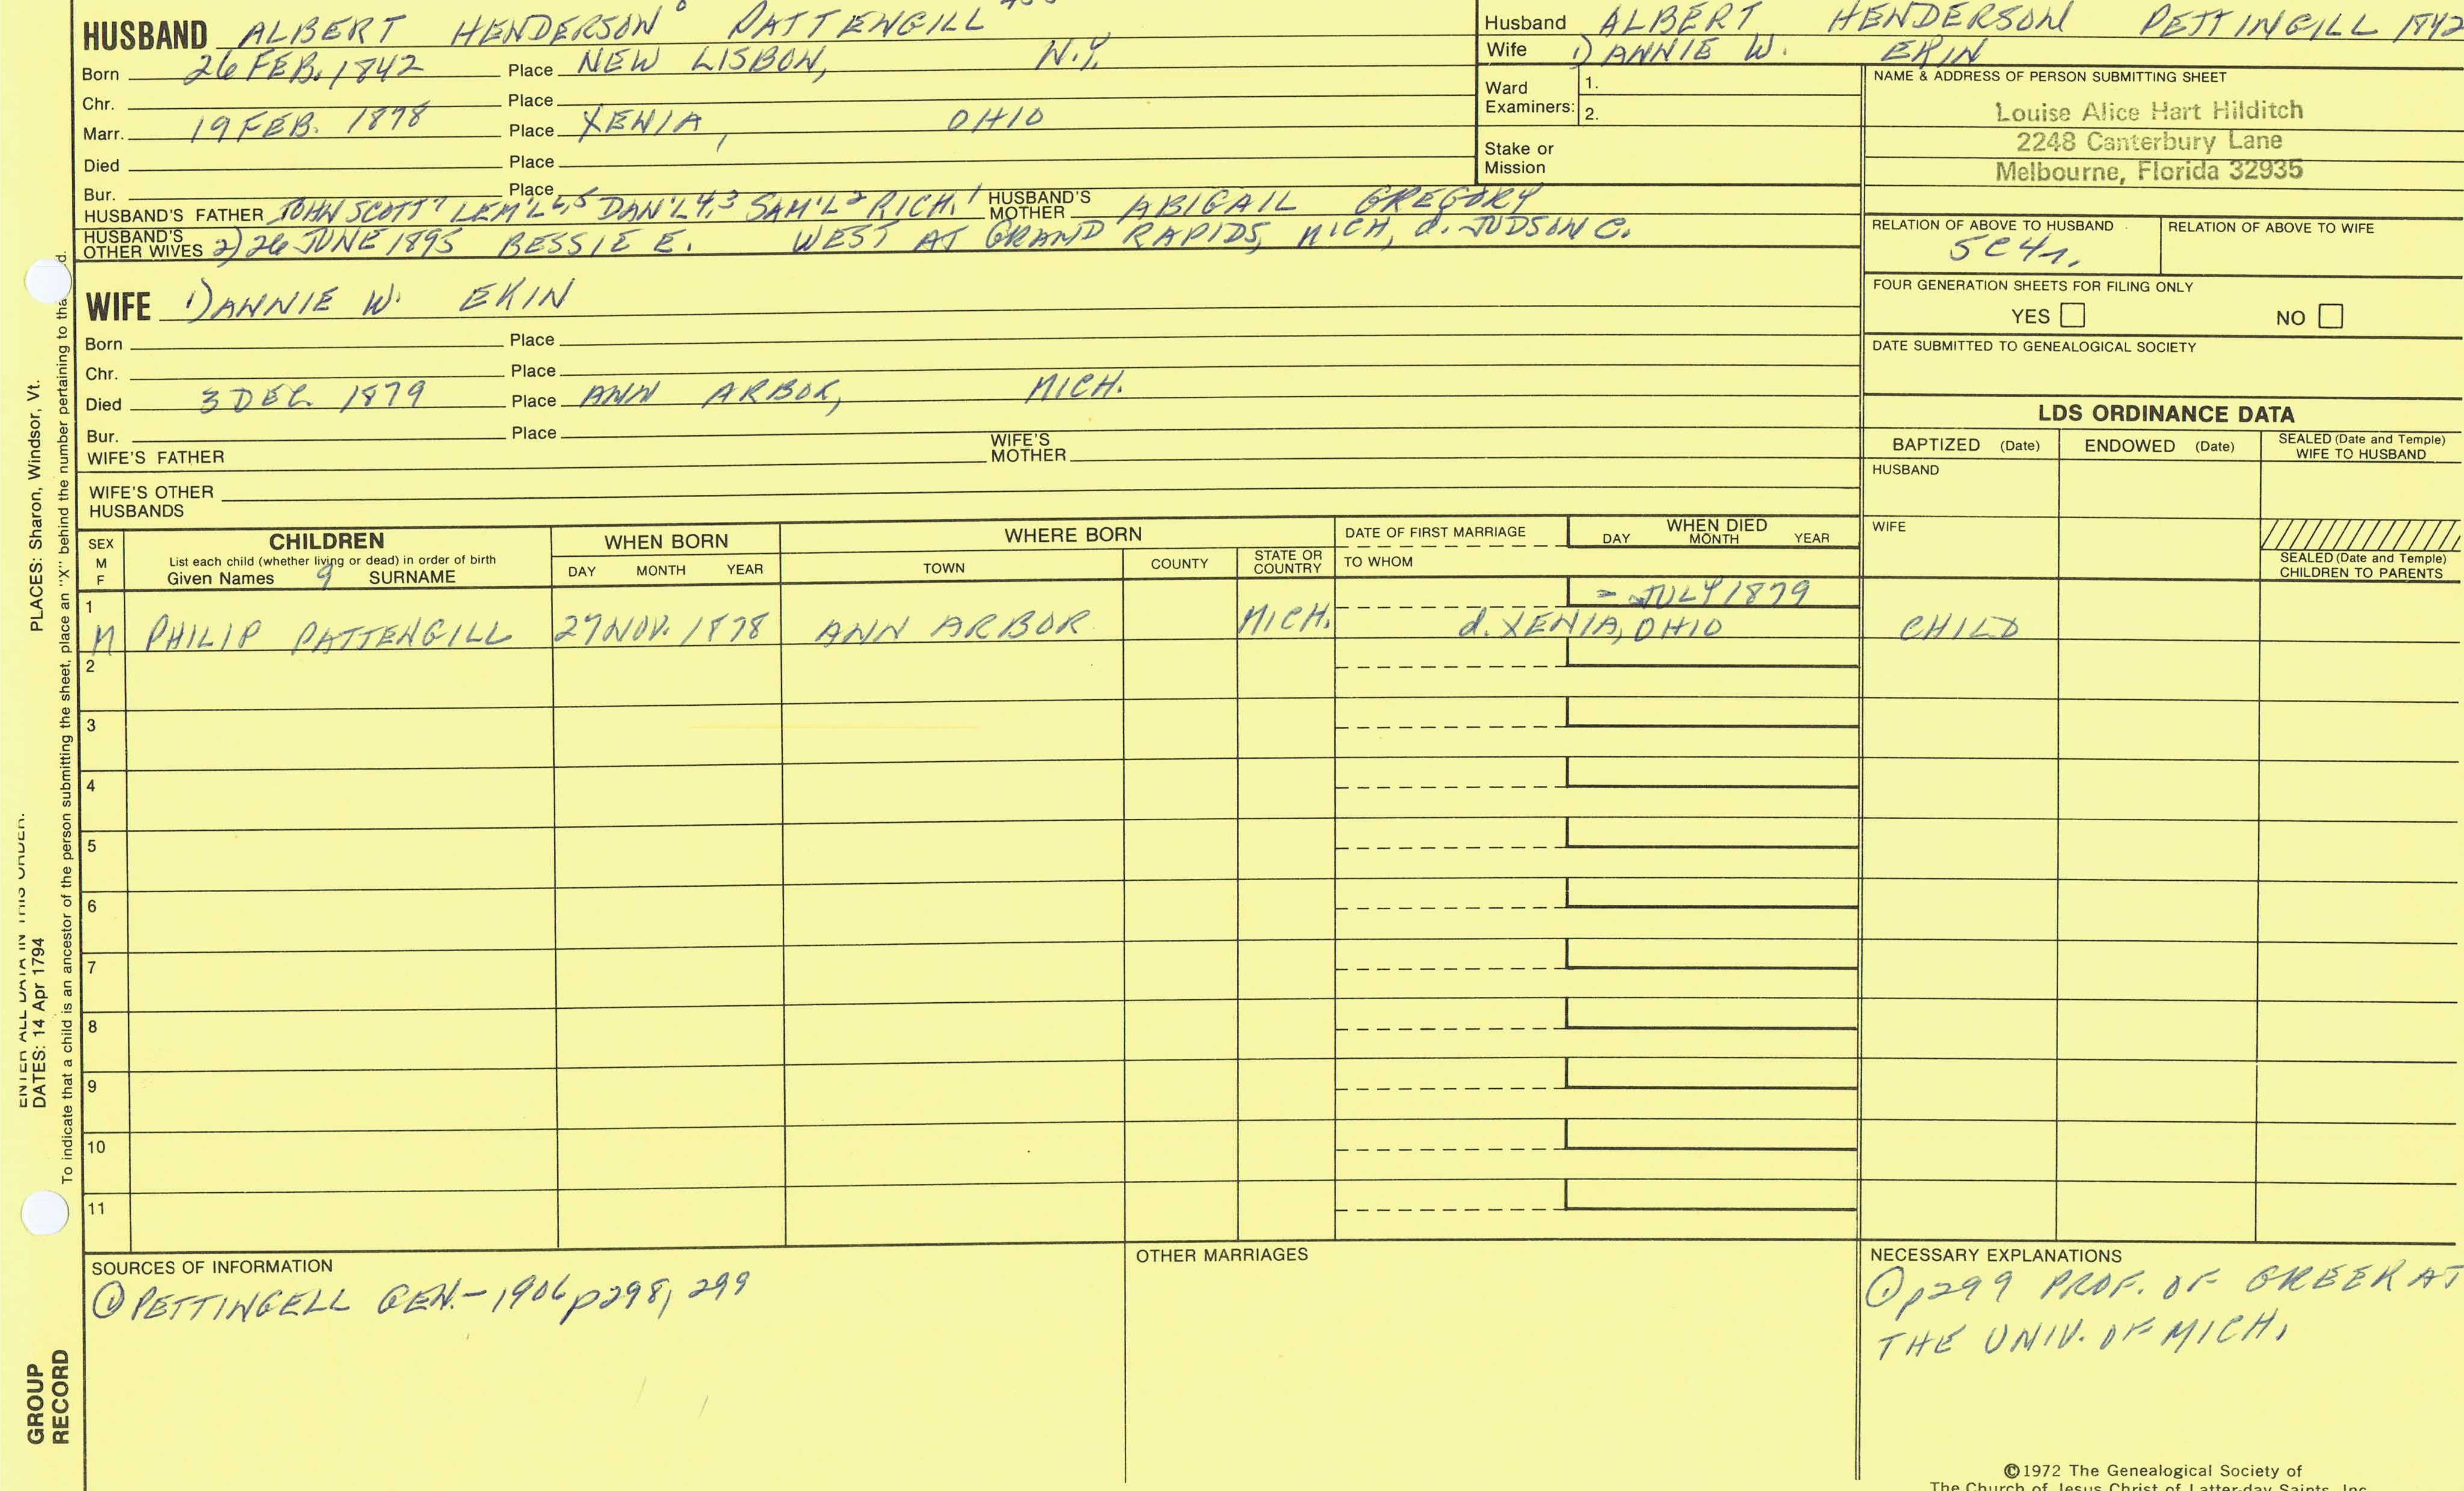 HUSBAND ALBERT HENDERSON PATTENGILL
Born 26 FEB. 1842 Place NEW LISBON, N.Y.
Chr. Place
Marr. 19 FEB. 1878 Place XENIA, OHIO
Died Place
Bur. Place
HUSBAND'S FATHER JOHN SCOTT 7 LEM'L 6,5 DAN'L 4,3 SAM'L 2 RICH. 1 HUSBAND'S MOTHER ABIGAIL GREGORY
HUSBAND'S OTHER WIVES 2) 26 JUNE 1895 BESSIE E. WEST AT GRAND RAPIDS, MICH, d. JUDSON C.
WIFE 1) ANNIE W. EKIN
Born Place
Chr. Place
Died 3 DEC. 1879 Place ANN ARBOR, MICH.
Bur. Place
WIFE'S FATHER WIFE'S MOTHER
WIFE'S OTHER HUSBANDS
Husband ALBERT HENDERSON PETTINGILL 1842
Wife 1) ANNIE W. EKIN
Ward Examiners: 1.
2.
Stake or Mission
NAME & ADDRESS OF PERSON SUBMITTING SHEET
Louise Alice Hart Hilditch
2248 Canterbury Lane
Melbourne, Florida 32935
RELATION OF ABOVE TO HUSBAND RELATION OF ABOVE TO WIFE
5C4r.
FOUR GENERATION SHEETS FOR FILING ONLY
YES NO
DATE SUBMITTED TO GENEALOGICAL SOCIETY
LDS ORDINANCE DATA
BAPTIZED (Date) ENDOWED (Date) SEALED (Date and Temple) WIFE TO HUSBAND
HUSBAND
WIFE
SEALED (Date and Temple) CHILDREN TO PARENTS
SEX M F CHILDREN WHEN BORN WHERE BORN DATE OF FIRST MARRIAGE WHEN DIED
List each child (whether living or dead) in order of birth
Given Names 9 SURNAME DAY MONTH YEAR TOWN COUNTY STATE OR COUNTRY TO WHOM DAY MONTH YEAR
1 - JULY 1879
M PHILIP PATTENGILL 27 NOV. 1878 ANN ARBOR MICH. d. XENIA, OHIO CHILD
2
3
4
5
6
7
8
9
10
11
SOURCES OF INFORMATION
① PETTINGELL GEN. - 1906 p298, 299
OTHER MARRIAGES
NECESSARY EXPLANATIONS
① p299 PROF. OF GREEK AT
THE UNIV. OF MICH.
©1972 The Genealogical Society of
The Church of Jesus Christ of Latter-day Saints, Inc.
ENTER ALL DATA IN THIS ORDER.
DATES: 14 Apr 1794 PLACES: Sharon, Windsor, Vt.
To indicate that a child is an ancestor of the person submitting the sheet, place an "X" behind the number pertaining to
GROUP
RECORD